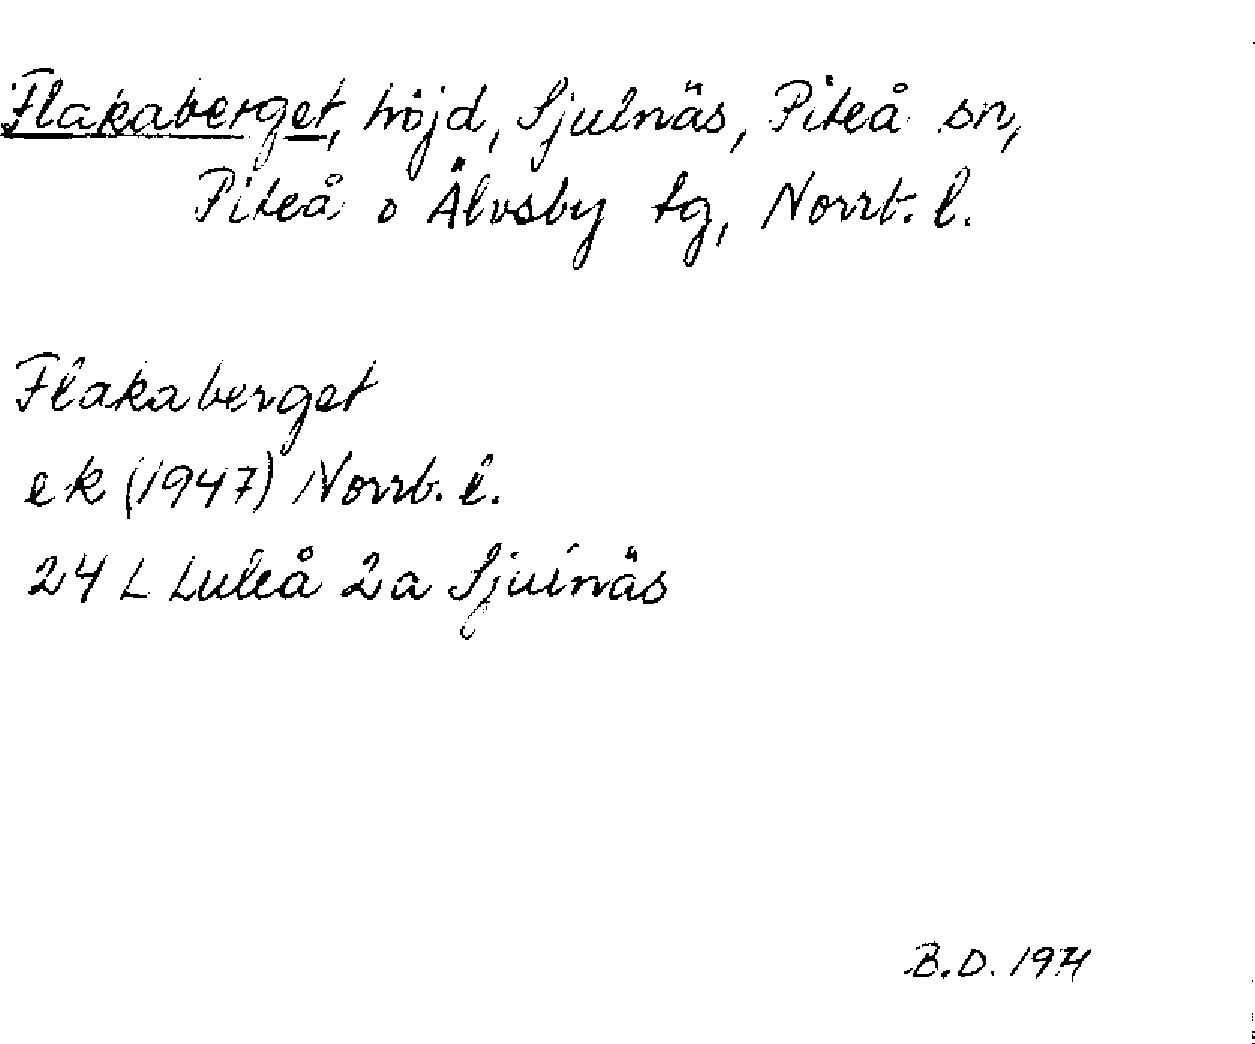 Flakaberget, höjd, Sjulnäs, Piteå sn,
Piteå o Älvsby tg, Norrb. l.
Flakaberget
ek (1947) Norrb. l.
24 L Luleå 2a Sjulnäs
B.D. 1974